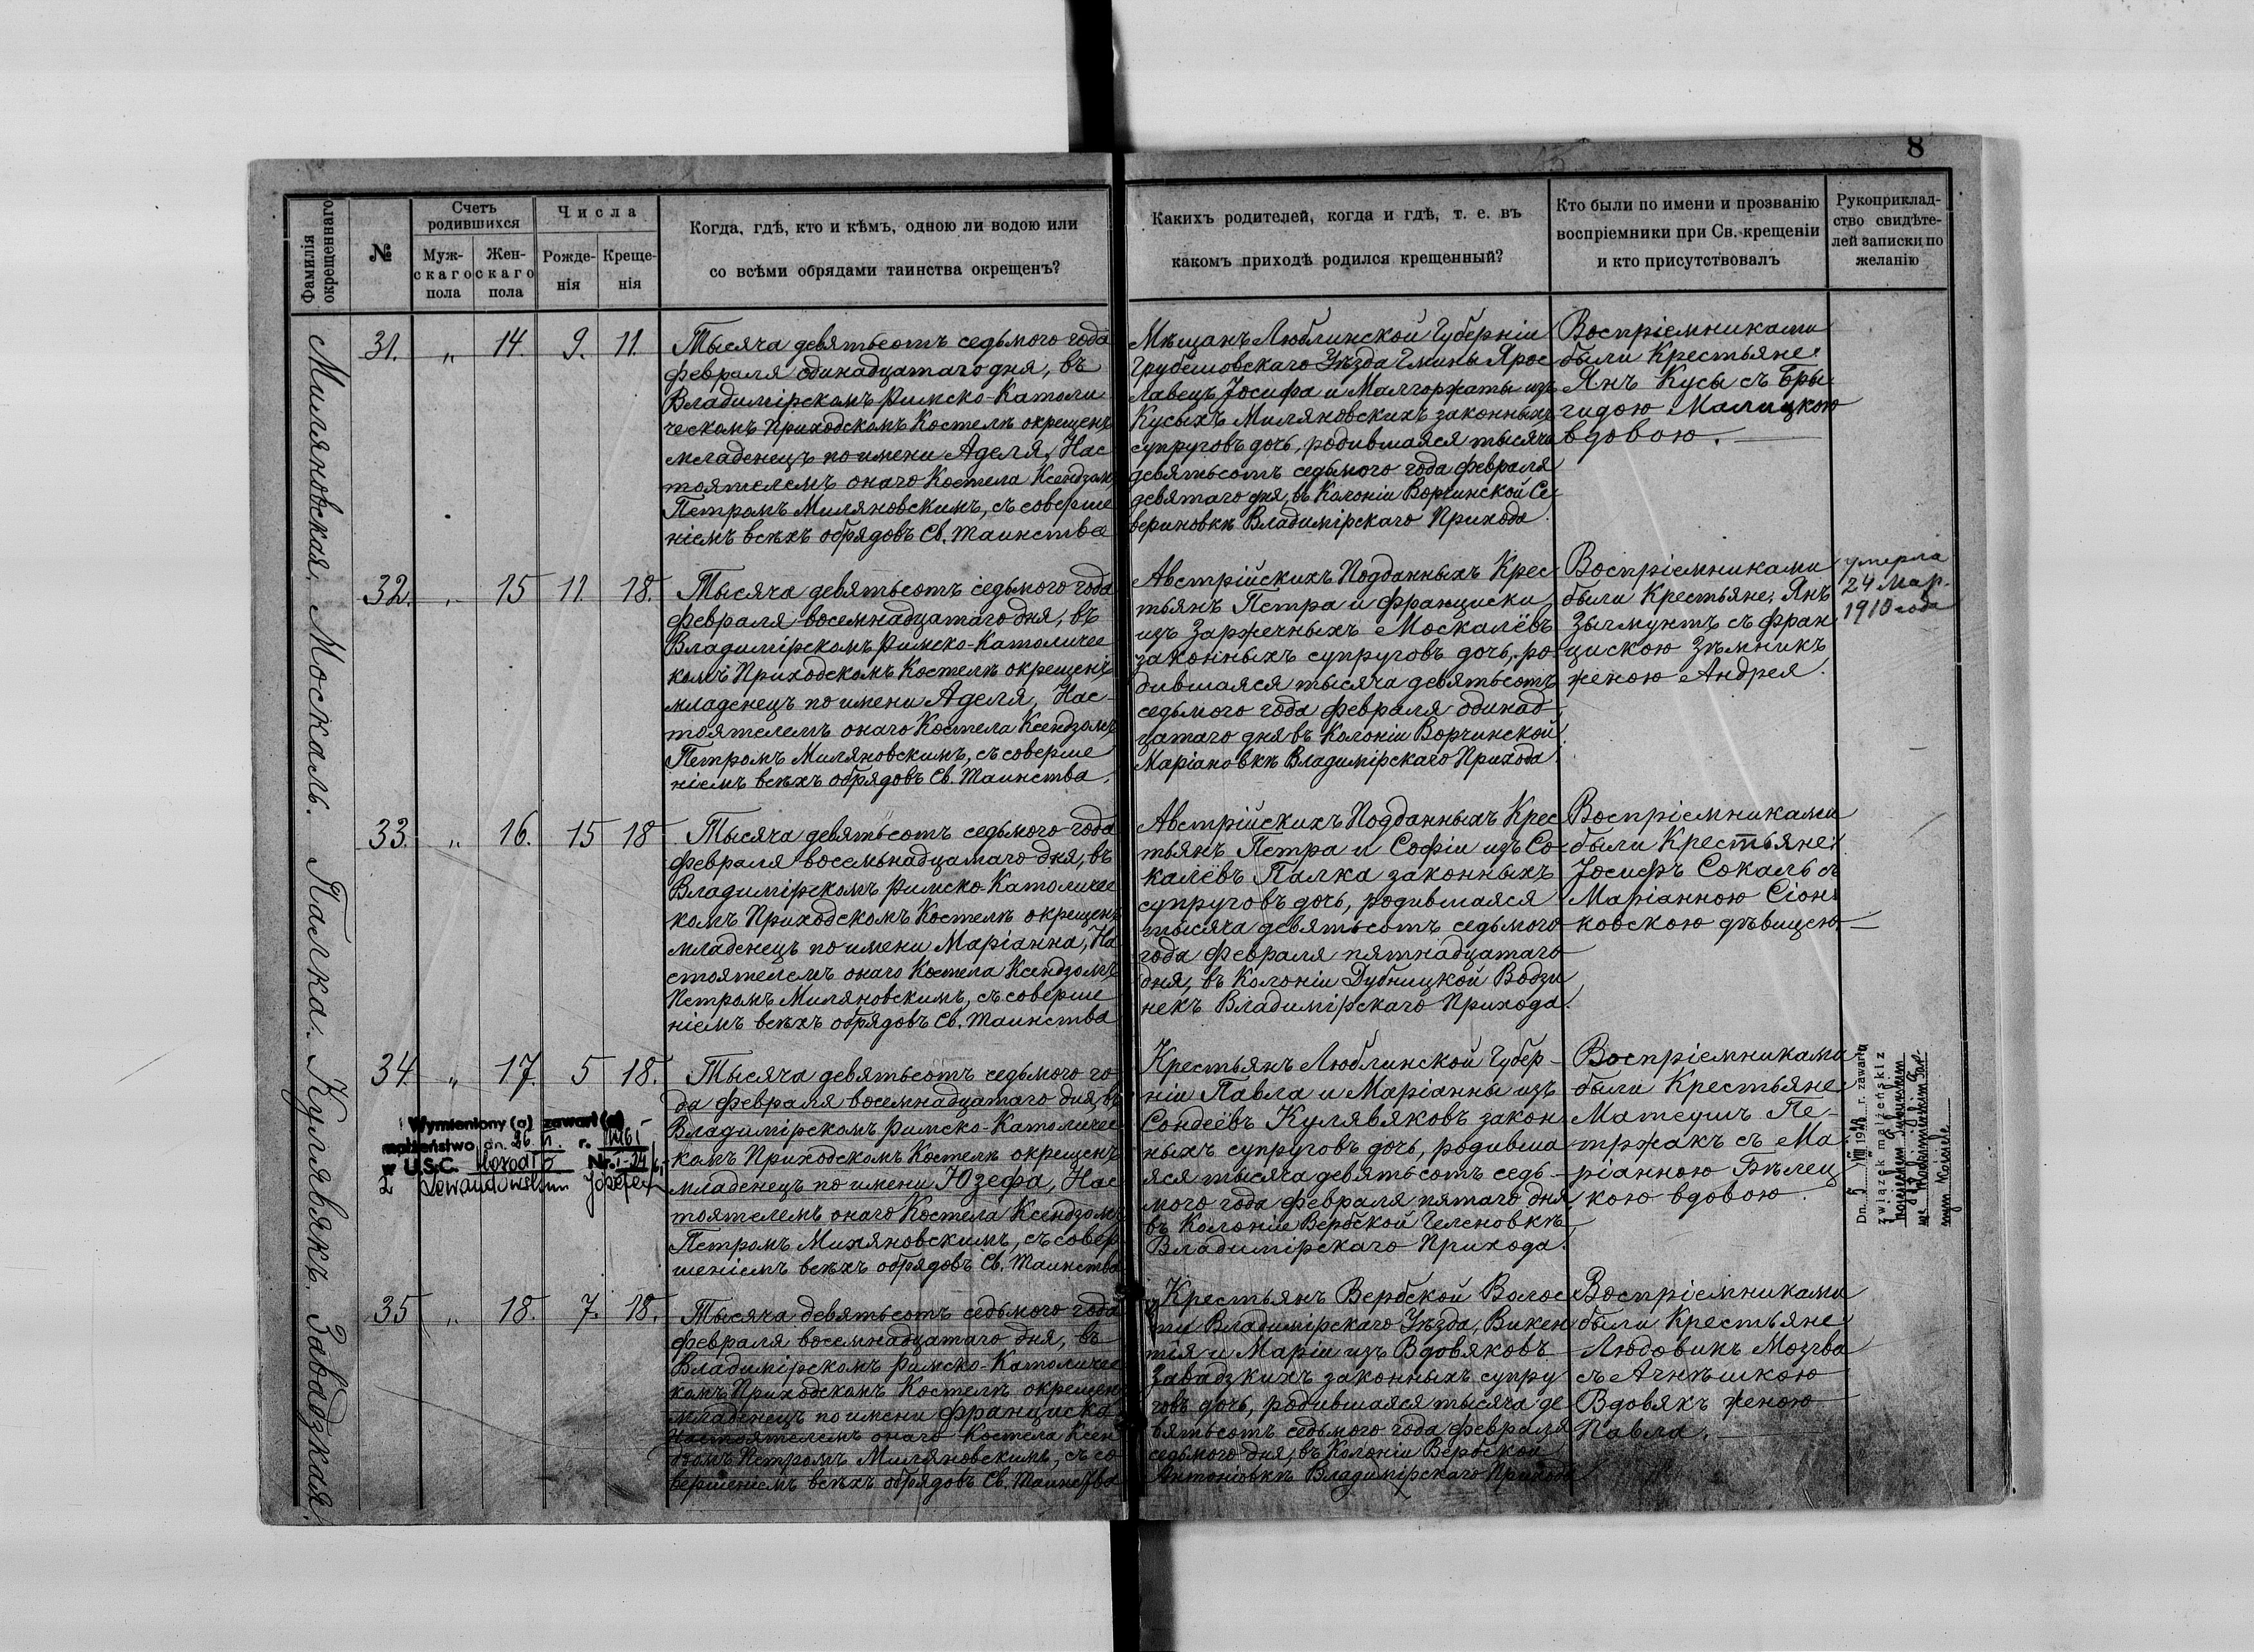 8
Фамилія
окрещеннаго
№
Счетъ
родившихся
Муж-
скаго
пола
Жен-
скаго
пола
Числа
Рожде-
нія
Креще-
нія
Когда, гдѣ, кто и кѣмъ, одною ли водою или
со всѣми обрядами таинства окрещенъ?
Какихъ родителей, когда и гдѣ, т. е. въ
какомъ приходѣ родился крещенный?
Кто были по имени и прозванію
воспріемники при Св. крещеніи
и кто присутствовалъ
Рукоприклад-
ство свидѣте-
лей записки по
желанію
Миляновская.
31. " 14. 9. 11.
Тысяча девятьсотъ седьмого года
февраля одинадцатаго дня, въ
Владимірскомъ Римско-Католи
ческомъ Приходскомъ Костелѣ окрещенъ
младенецъ по имени Аделя, Нас
тоятелемъ онаго Костела Ксендзомъ
Петромъ Миляновскимъ, съ соверше
ніемъ всѣхъ обрядовъ Св. Таинства
Мѣщанъ Люблинской Губерніи
Грубешовскаго Уѣзда Гмины Ярос
лавецъ Іосифа и Малгоржаты изъ
Кусыхъ Миляновскихъ законныхъ
супруговъ дочь, родившаяся тысяча
девятьсотъ седьмого года февраля
девятаго дня, въ Колоніи Ворчинской Се
вериновкѣ Владимірскаго Прихода.
Воспріемниками
были Крестьяне:
Янъ Кусы съ Бры
гидою Малицкою
вдовою.
Москаль.
32. " 15 11. 18.
Тысяча девятьсотъ седьмого года
февраля восемнадцатаго дня, въ
Владимірскомъ Римско-Католичес
комъ Приходскомъ Костелѣ окрещенъ
младенецъ по имени Аделя, Нас-
тоятелемъ онаго Костела Ксендзомъ
Петромъ Миляновскимъ, съ соверше
ніемъ всѣхъ обрядовъ Св. Таинства.
Австрійскихъ Подданныхъ Крес-
тьянъ Петра и Франциски,
изъ Заржечныхъ Москалёвъ
законныхъ супруговъ дочь, ро
дившаяся тысяча девятьсотъ
седьмого года февраля одинад-
цатаго дня въ Колоніи Ворчинской
Маріановкѣ Владимірскаго Прихода.
Воспріемниками
были Крестьяне: Янъ
Зычмунтъ съ Фран
цискою Зѣмникъ
женою Андрея.
умерла
24 Мар.
1910 года
Палка.
33. " 16. 15 18
Тысяча девятьсотъ седьмого года
февраля восемьнадцатаго дня, въ
Владимірскомъ Римско-Католичес
комъ Приходскомъ Костелѣ окрещенъ
младенецъ по имени Маріанна, На
стоятелемъ онаго Костела Ксендзомъ
Петромъ Миляновскимъ, съ соверше
ніемъ всѣхъ обрядовъ Св. Таинства
Австрійскихъ Подданныхъ Крес
тьянъ Петра и Софіи изъ Со-
калёвъ Палка законныхъ
супруговъ дочь, родившаяся
тысяча девятьсотъ седьмого
года февраля пятнадцатаго
дня, въ Колоніи Дубницкой Водзи
некъ Владимірскаго Прихода.
Воспріемниками
были Крестьяне:
Іосифъ Сокаль съ
Маріанною Сіон
ковскою дѣвицею.
Кулявякъ.
34. " 17. 5 18.
Тысяча девятьсотъ седьмого го-
да февраля восемнадцатаго дня, въ
Владимірскомъ Римско-Католичес
комъ Приходскомъ Костелѣ окрещенъ
младенецъ по имени Юзефа, Нас
тоятелемъ онаго Костела Ксендзомъ
Петромъ Миляновскимъ, съ совер
шеніемъ всѣхъ обрядовъ Св. Таинства
Wymieniony (a) zawarł (a)
małżeństwo dn. 26. r.
w U.S.C. Nr.
z Lewandowskim Józefem
Крестьянъ Люблинской Губер-
ніи Павла и Маріанны изъ
Сондеёвъ Кулявяковъ закон
ныхъ супруговъ дочь, родивша
яся тысяча девятьсотъ седь-
мого года февраля пятаго дня
въ Колоніи Вербской Геленовкѣ
Владимірскаго Прихода.
Воспріемниками
были Крестьяне
Матеушъ Пе-
тржакъ съ Ма
ріанною Бѣлец
кою вдовою.
Dn. 5 VIII r. zawarła
związek małżeński z
Завадзкая.
35 " 18. 7. 18.
Тысяча девятьсотъ седьмого года
февраля восемнадцатаго дня, въ
Владимірскомъ Римско-Католичес
комъ Приходскомъ Костелѣ окрещенъ
младенецъ по имени Франциска
Настоятелемъ онаго Костела Ксен
дзомъ Петромъ Миляновскимъ, съ со
вершеніемъ всѣхъ обрядовъ Св. Таинства
Крестьянъ Вербской Волос
ти Владимірскаго Уѣзда, Викен
тія и Маріи изъ Вдовяковъ
Завадзкихъ законныхъ супру
говъ дочь, родившаяся тысяча де
вятьсотъ седьмого года февраля
седьмого дня, въ Колоніи Вербской
Антоніовкѣ Владимірскаго Прихода
Воспріемниками
были Крестьяне
Людовикъ Мозгва
съ Агнѣшкою
Вдовякъ женою
Павла.